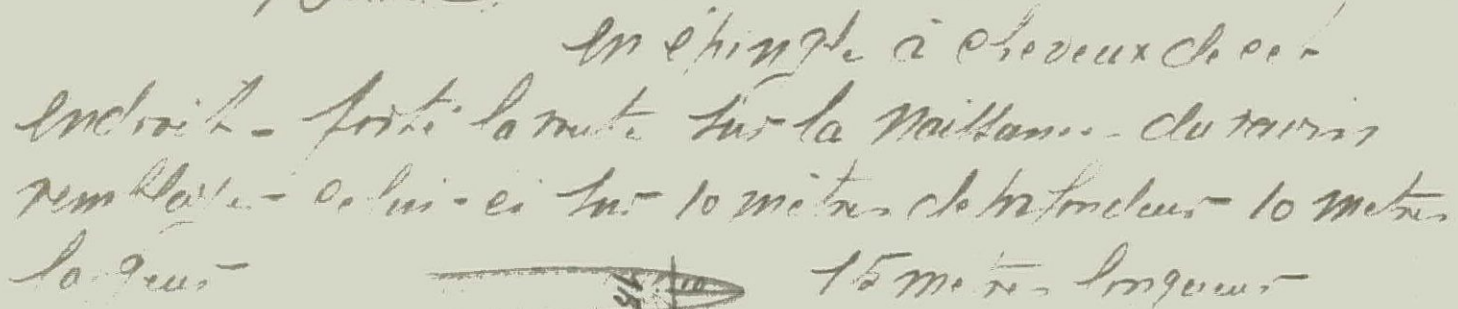 en épingle à cheveux de cet
endroit - la route sur la naissance - du ravin
remblayer - celui-ci sur 10 mètres de profondeur - 10 metres
largeur 15 metres longueur